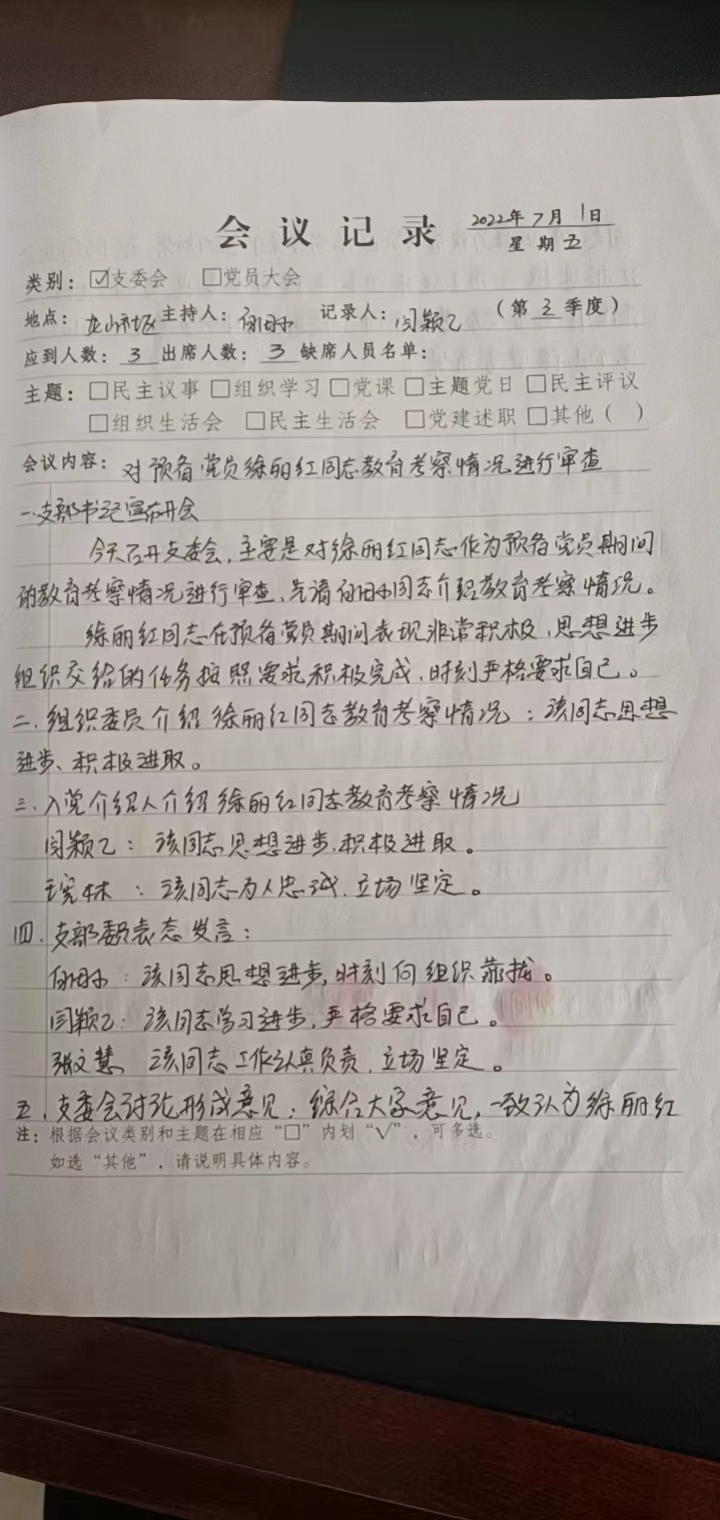 会议记录
2022年7月1日
星期五
类别：☑支委会 □党员大会
地点：龙山社区 主持人： 记录人：闫颖乙 （第3季度）
应到人数：3 出席人数：3 缺席人员名单：
主题：□民主议事 □组织学习 □党课 □主题党日 □民主评议
□组织生活会 □民主生活会 □党建述职 □其他（ ）
会议内容：对预备党员徐丽红同志教育考察情况进行审查
一.支部书记宣布开会
今天召开支委会，主要是对徐丽红同志作为预备党员期间
的教育考察情况进行审查，先请同志介绍教育考察情况。
徐丽红同志在预备党员期间表现非常积极，思想进步
组织交给的任务按照要求积极完成，时刻严格要求自己。
二.组织委员介绍徐丽红同志教育考察情况：该同志思想
进步、积极进取。
三.入党介绍人介绍徐丽红同志教育考察情况
闫颖乙：该同志思想进步，积极进取。
林：该同志为人忠诚，立场坚定。
四.支部委员表态发言：
：该同志思想进步，时刻向组织靠拢。
闫颖乙：该同志学习进步，严格要求自己。
张文慧 该同志工作认真负责，立场坚定。
五.支委会讨论形成意见：综合大家意见，一致认为徐丽红
注：根据会议类别和主题在相应“□”内划“√”，可多选。
如选“其他”，请说明具体内容。